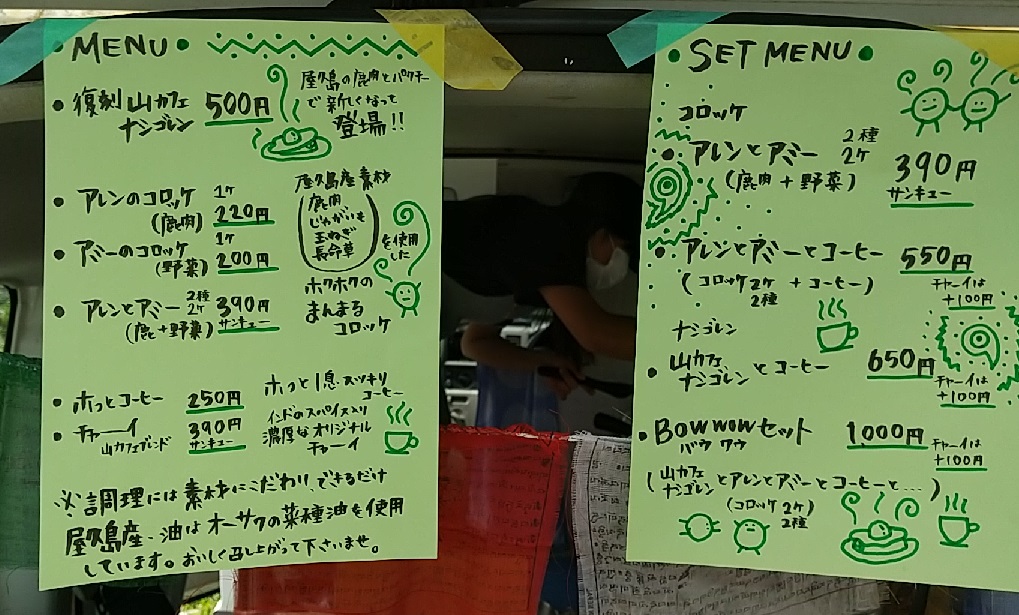 MENU
復刻 山カフェ
ナシゴレン
500円
屋久島の鹿肉とパクチー
で新しくなって
登場!!
アレンのコロッケ 1ケ
(鹿肉) 220円
アミーのコロッケ 1ケ
(野菜) 200円
アレンとアミー 2種 2ケ 390円
(鹿+野菜) サンキュー
屋久島産素材
鹿肉
じゃがいも
玉ねぎ
長命草
を使用した
ホクホクの
まんまる
コロッケ
ホっとコーヒー 250円
チャーイ 390円
山カフェブレンド サンキュー
ホっと1息スッキリ
コーヒー
インドのスパイス入り
濃厚なオリジナル
チャーイ
※調理には素材にこだわり、できるだけ
屋久島産、油はオーサワの菜種油を使用
しています。おいしく召し上がって下さいませ。
SET MENU
コロッケ
アレンとアミー 2種 2ケ 390円
(鹿肉+野菜) サンキュー
アレンとアミーとコーヒー 550円
(コロッケ2ケ+コーヒー)
2種
チャーイは
+100円
ナシゴレン
山カフェ
ナシゴレンとコーヒー 650円
チャーイは
+100円
Bowwowセット 1000円
バウ ワウ
チャーイは
+100円
(山カフェ
ナシゴレンとアレンとアミーとコーヒーと…)
(コロッケ2ケ)
2種